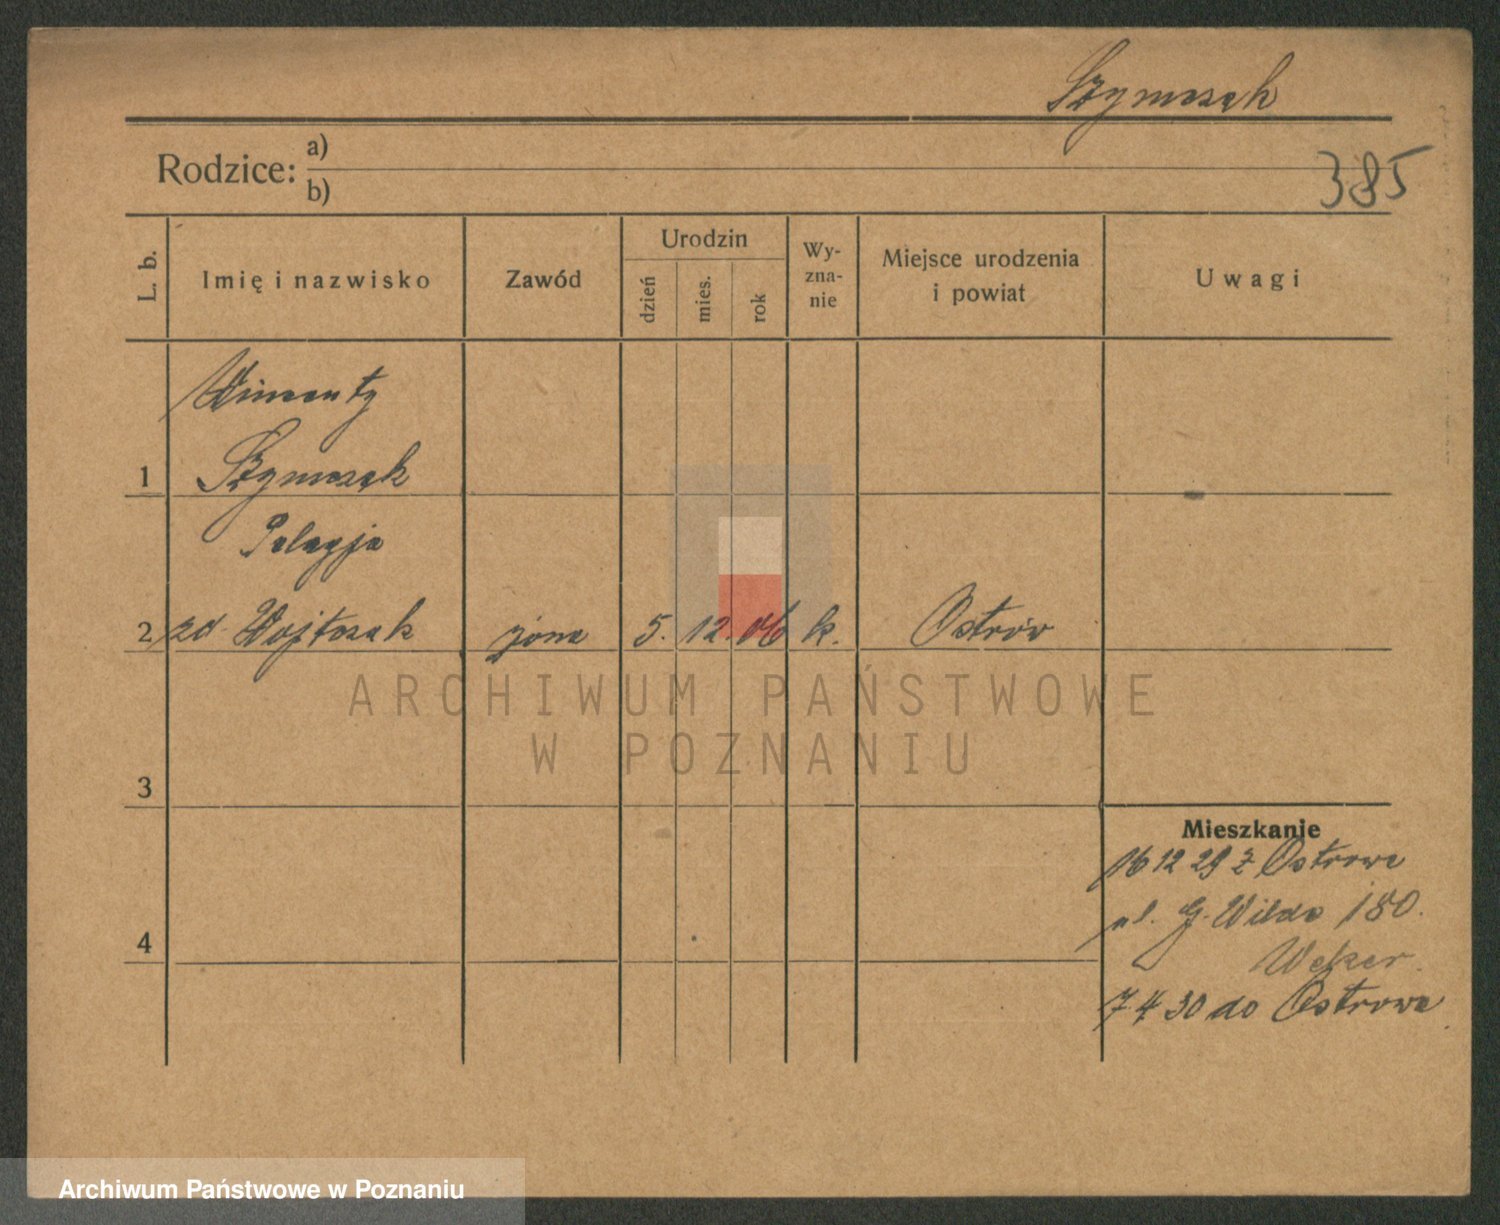 Szymczak
385
Rodzice: a)
b)
L. b.
Imię i nazwisko
Zawód
Urodzin
dzień
mies.
rok
Wy-
zna-
nie
Miejsce urodzenia
i powiat
Uwagi
Wincenty
1 Szymczak
Pelagja
2 zd Wojtczak żona 5. 12. 06 k. Ostrów
ARCHIWUM PAŃSTWOWE
W POZNANIU
3
4
Mieszkanie
16 12 29 z Ostrowa
ul. G. Wilda 180.
7 4 30 do Ostrowa
Archiwum Państwowe w Poznaniu